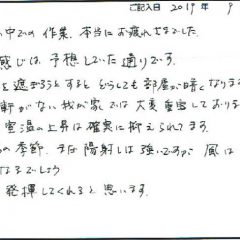 ご記入日 2019年 9
中での作業、本当にお疲れさまでした。
感じは、予想していた通りです。
を遮ぎろうとするとどうしても部屋が暗くなります
軒がない我が家では大変重宝しておりま
室温の上昇は確実に抑えられてます。
の季節、まだ陽射しは強いですが、風は
なるでしょう
発揮してくれると思います。